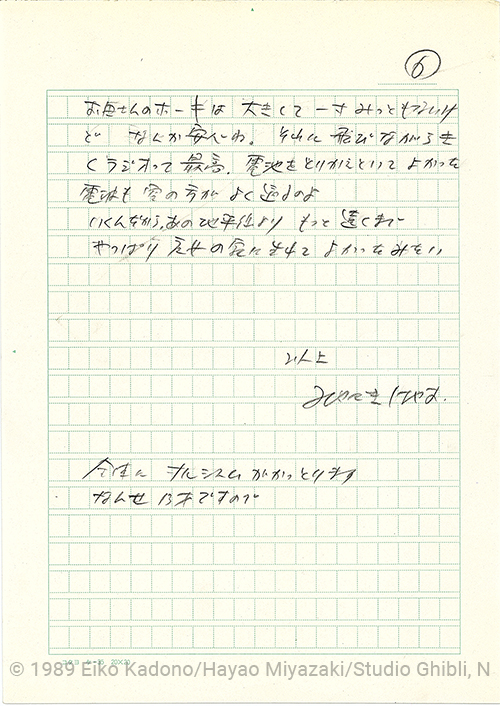 6
お母さんのホーキは 大きくて 一寸みっともないけ
ど なんか安心ね。それに 飛びながらき
くラジオって 最高。電池をとりかえといて よかった
電波も 空の方が よく通るのよ
いくんだから、あの地平線より もっと遠くまで
やっぱり 魔女の家に生れて よかったみたい
以上
みやざきはやお.
全体に ナルシズムがかっとります
なんせ 13才ですので
20×20
© 1989 Eiko Kadono/Hayao Miyazaki/Studio Ghibli, N